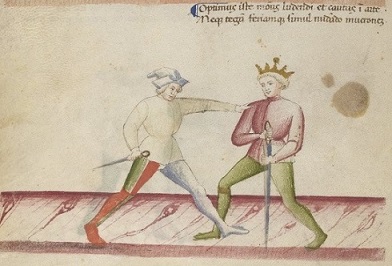 Optimus iste modus ludendi et cautus i arte
Meqȝ tegā feriamqȝ simul nudādo mucrones